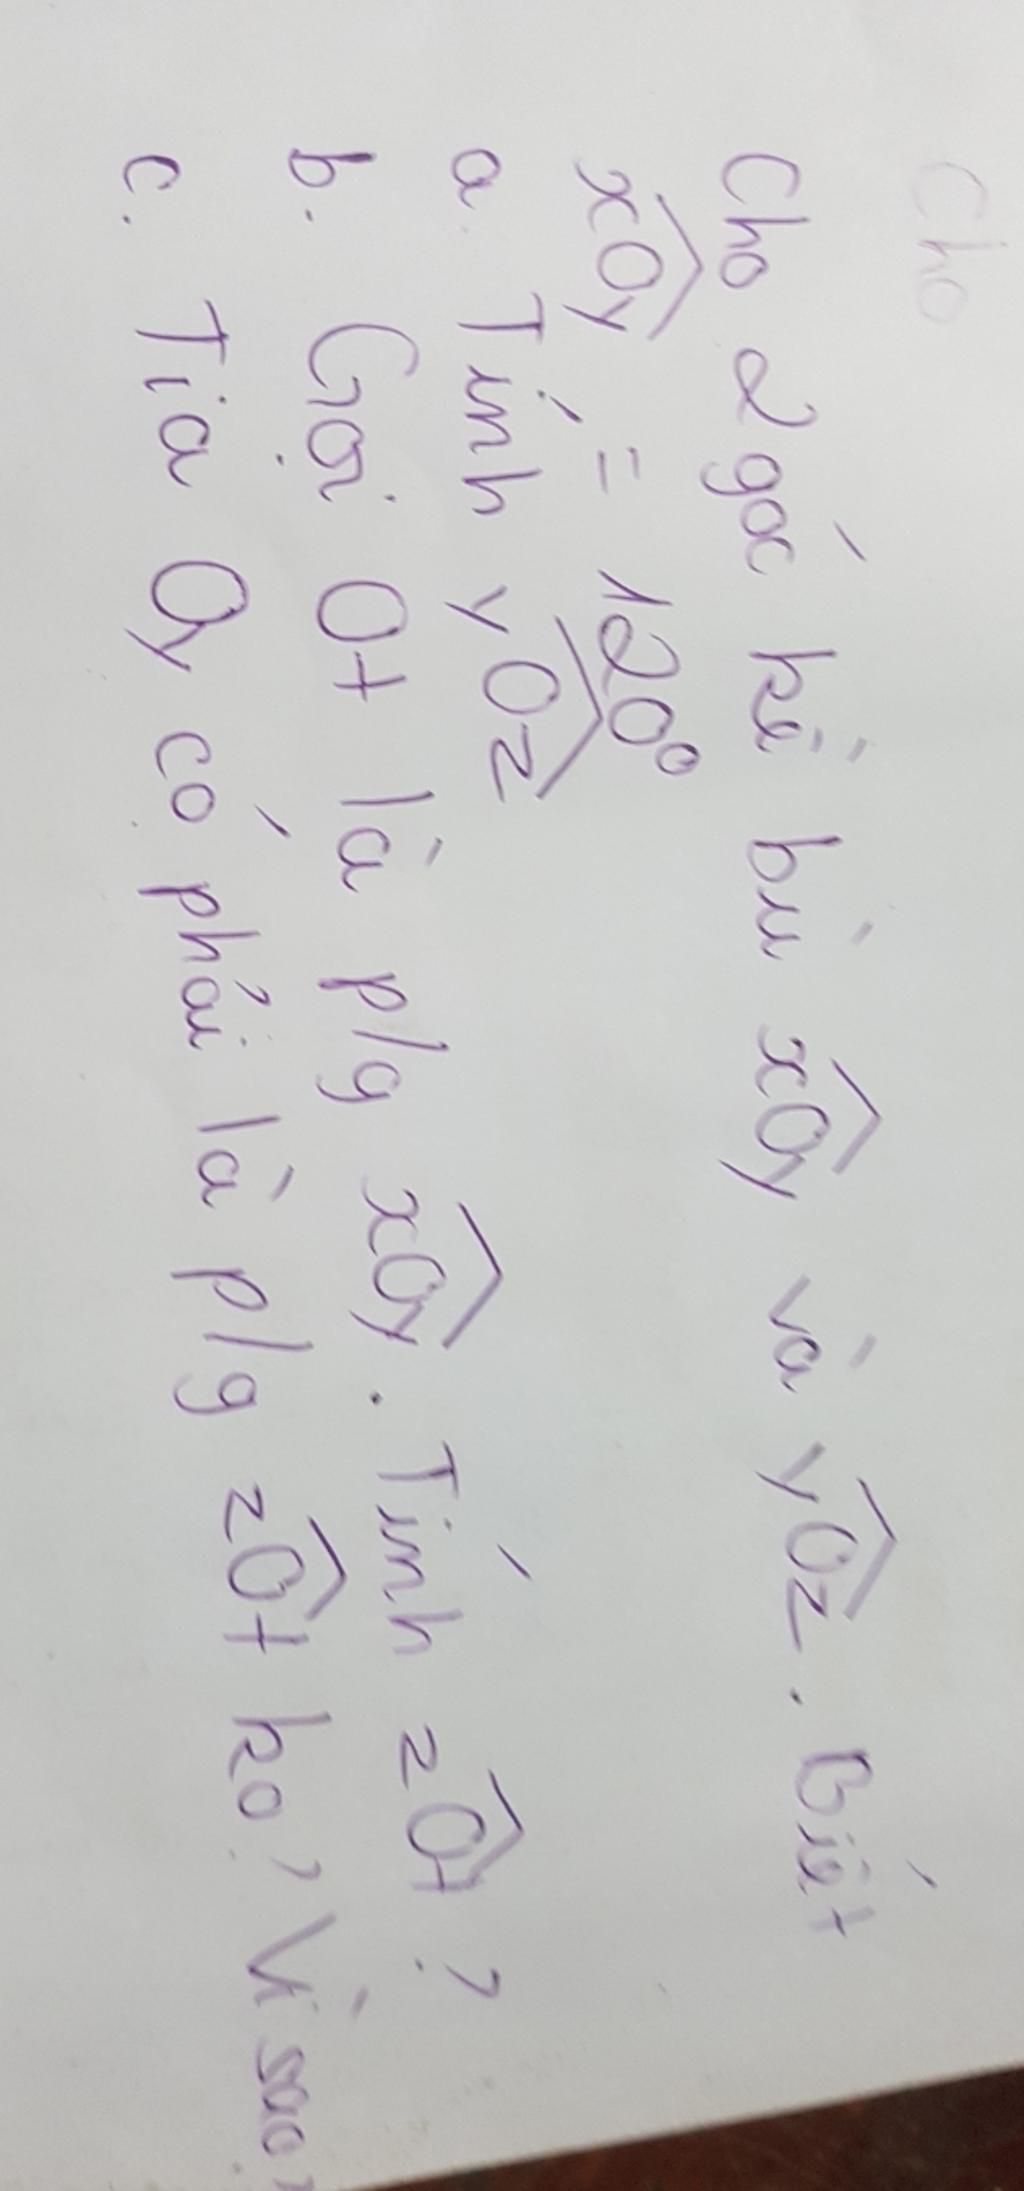 Cho
Cho 2 góc kề bù xOy và yOz. Biết
xOy = 120°
a. Tính yOz
b. Gọi Ot là p/g xOy. Tính zOt?
c. Tia Oy có phải là p/g zOt ko? Vì sao?